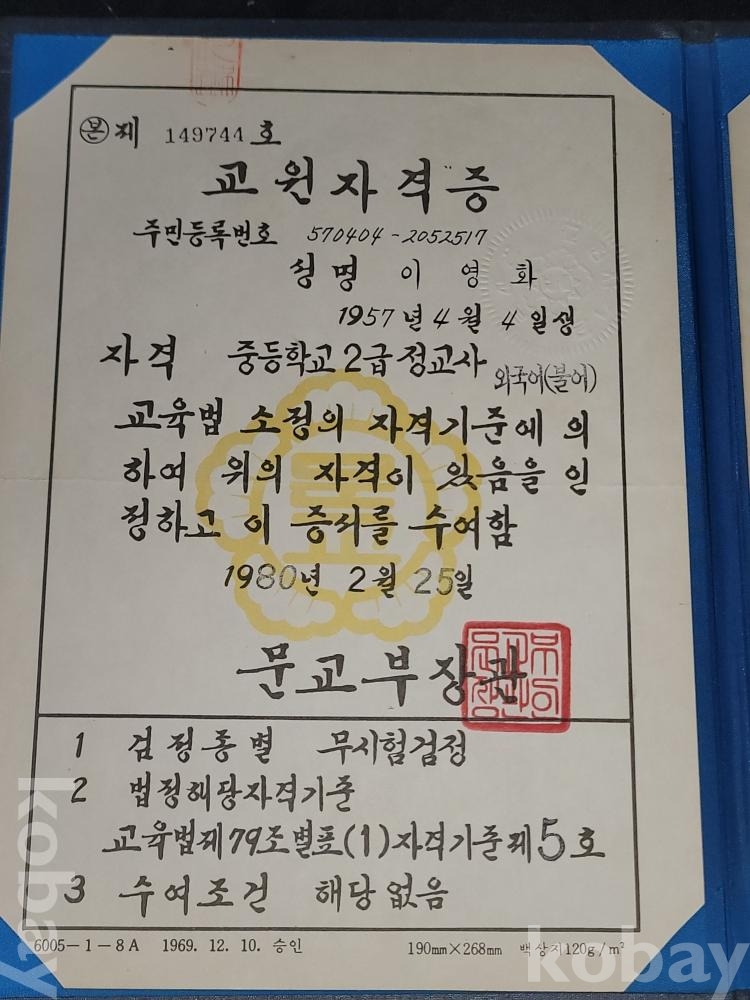 본 제 149744 호
교원자격증
주민등록번호 570404-2052517
성명 이 영 화
1957년 4월 4일생
자격 중등학교2급정교사 외국어(불어)
교육법 소정의 자격기준에 의
하여 위의 자격이 있음을 인
정하고 이 증서를 수여함
1980년 2월 25일
문교부장관
1 검정종별 무시험검정
2 법정해당자격기준
교육법제79조별표(1)자격기준제5호
3 수여조건 해당없음
6005-1-8A 1969. 12. 10. 승인 190mm×268mm 백상지120g/m²
kobay
kobay